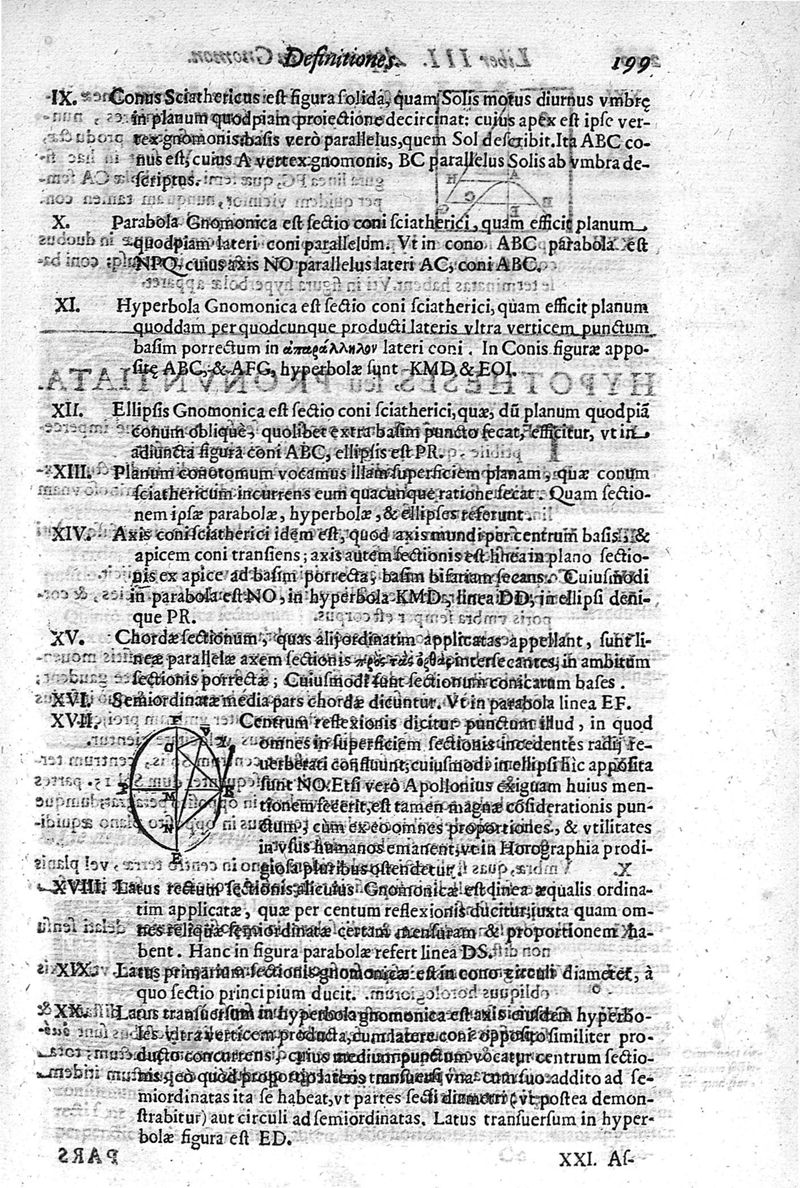 Definitiones. 199
IX. Conus Sciathericus est figura solida, quam Solis motus diurnus vmbrę
in planum quodpiam proiectione decircinat: cuius apex est ipse ver-
tex gnomonis, basis verò parallelus, quem Sol describit. Ita ABC co-
nus est, cuius A vertex gnomonis, BC parallelus Solis ab vmbra de-
scriptus.
X. Parabola Gnomonica est sectio coni sciatherici, quam efficit planum
quodpiam lateri coni parallelum. Vt in cono ABC parabola est
NPQ, cuius axis NO parallelus lateri AC, coni ABC.
XI. Hyperbola Gnomonica est sectio coni sciatherici, quam efficit planum
quoddam per quodcunque producti lateris vltra verticem punctum
basim porrectum in ἀπαράλληλον lateri coni. In Conis figuræ appo-
sitę ABC, & AFG, hyperbolæ sunt KMD & EOI.
XII. Ellipsis Gnomonica est sectio coni sciatherici, quæ, dũ planum quodpiã
conum obliquè, quolibet extra basim puncto secat, efficitur, vt in
adiuncta figura coni ABC, ellipsis est PR.
XIII. Planum conotomum vocamus illam superficiem planam, quæ conum
sciathericum incurrens eum quacunque ratione secat. Quam sectio-
nem ipsæ parabolæ, hyperbolæ, & ellipses referunt.
XIV. Axis coni sciatherici idem est, quod axis mundi per centrum basis, &
apicem coni transiens; axis autem sectionis est linea in plano sectio-
nis ex apice ad basim porrecta, basim bifariam secans. Cuiusmodi
in parabola est NO, in hyperbola KMD, linea DD, in ellipsi deni-
que PR.
XV. Chordæ sectionum, quas alij ordinatim applicatas appellant, sunt li-
neæ parallelæ axem sectionis intersecantes, in ambitum
sectionis porrectæ; Cuiusmodi sunt sectionum conicarum bases.
XVI. Semiordinatæ media pars chordæ dicuntur. Vt in parabola linea EF.
XVII. Centrum reflexionis dicitur punctum illud, in quod
omnes in superficiem sectionis incedentes radij re-
uerberati confluunt, cuiusmodi in ellipsi hic apposita
sunt NO. Etsi verò Apollonius exiguam huius men-
tionem fecerit, est tamen magnæ cõsiderationis pun-
ctum; cùm ex eo omnes proportiones, & vtilitates
in vsus humanos emanent, vt in Horographia prodi-
giosa pluribus ostendetur.
XVIII. Latus rectum sectionis alicuius Gnomonicæ est linea æqualis ordina-
tim applicatæ, quæ per centum reflexionis ducitur, iuxta quam om-
nes reliquæ semiordinatæ certam mensuram & proportionem ha-
bent. Hanc in figura parabolæ refert linea DS.
XIX. Latus primarium sectionis gnomonicæ est in cono circuli diameter, à
quo sectio principium ducit.
XX. Latus transuersum in hyperbola gnomonica est axis eiusdem hyperbo-
les vltra verticem producta, cum latere coni opposito similiter pro-
ducto concurrens, cuius medium punctum vocatur centrum sectio-
nis, eò quòd proportio lateris transuersi vna cum suo addito ad se-
miordinatas ita se habeat, vt partes secti diametri (vt postea demon-
strabitur) aut circuli ad semiordinatas. Latus transuersum in hyper-
bolæ figura est ED.
XXI. As-